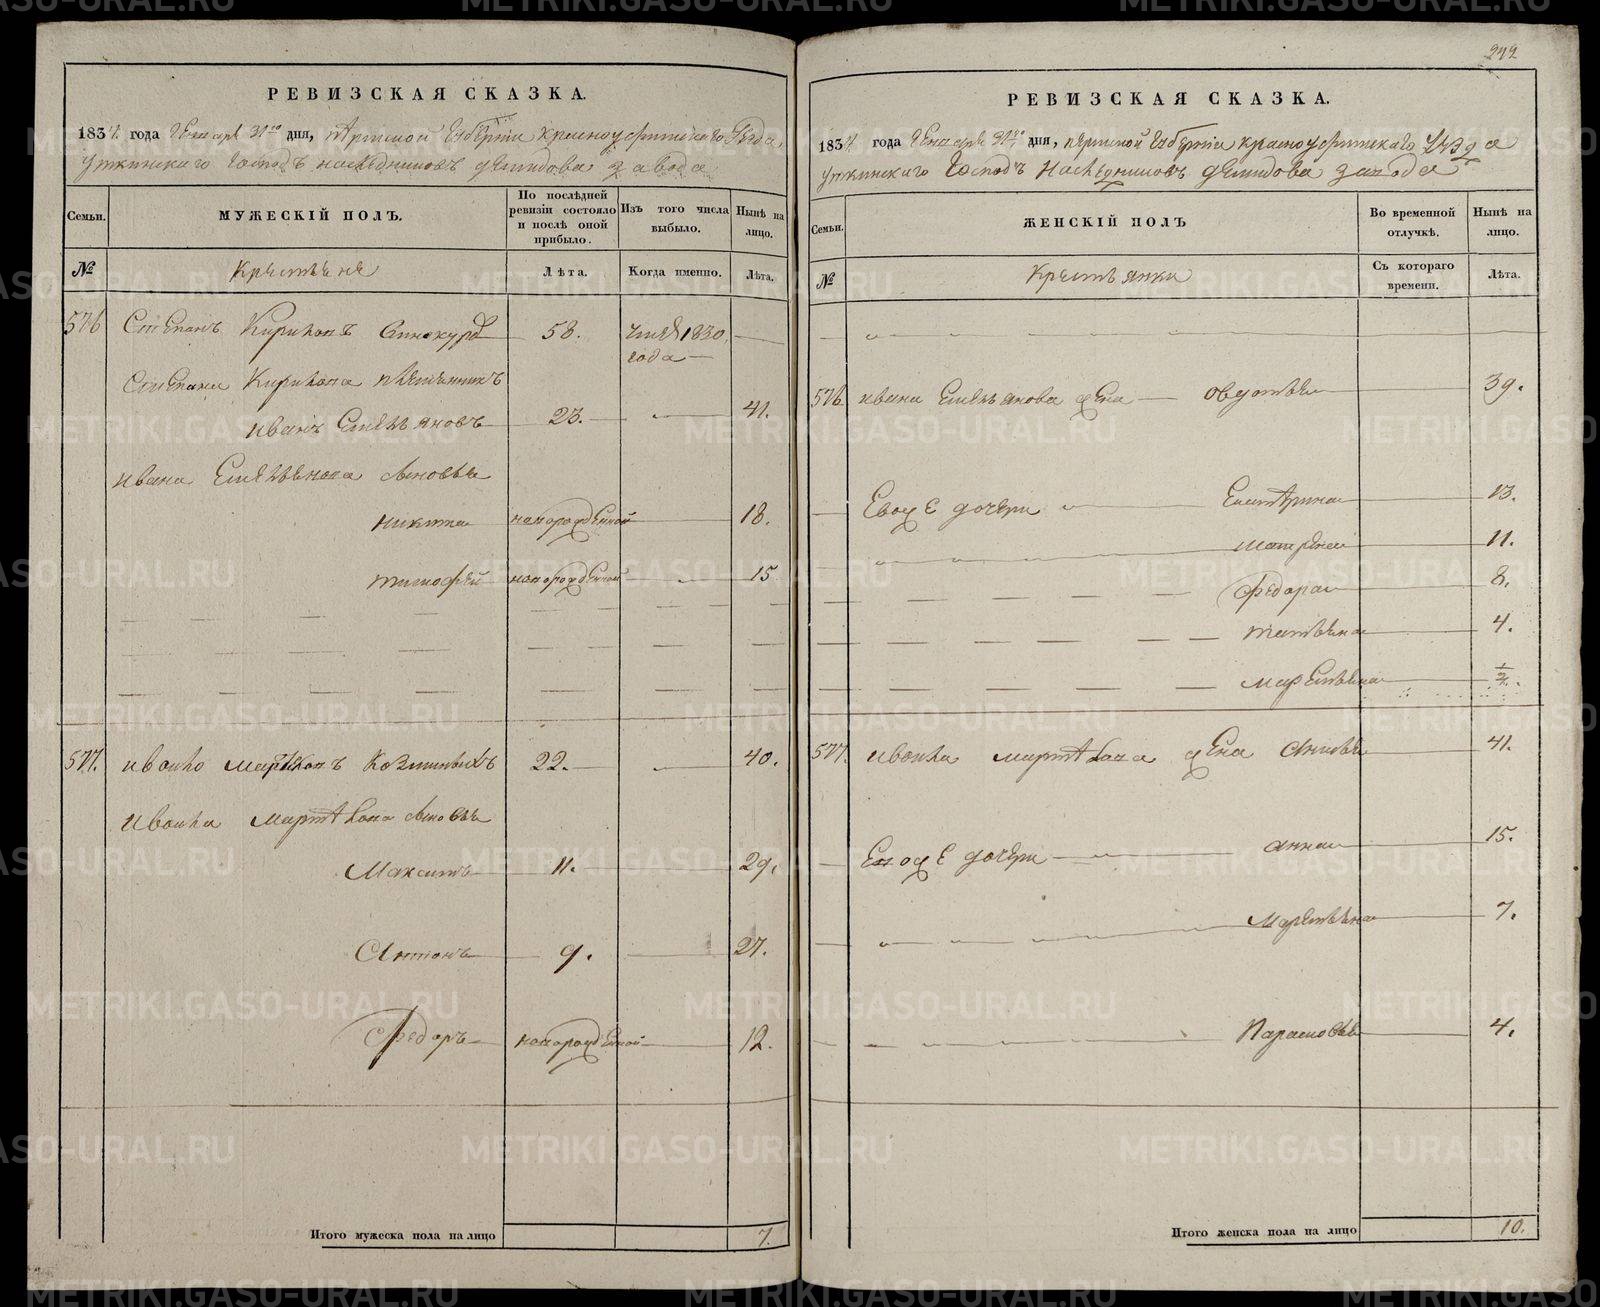 242
РЕВИЗСКАЯ СКАЗКА.
1834 года Генваря 31го дня, пермской Губернiи красноуфимскаго Уезда
уткинскаго Господъ наследниковъ демидова завода
Семьи.
МУЖЕСКІЙ ПОЛЪ.
По послѣдней ревизіи состояло и послѣ оной прибыло.
Изъ того числа выбыло.
Нынѣ на лицо.
№
Крестьяне
Лѣта.
Когда именно.
Лѣта.
576 Степанъ Кириловъ 58. 1830
года
Степана Кирилова племянникъ
иванъ Емельяновъ 23. 41.
ивана Емельянова сыновья
никита новорожденной 18.
тимофей новорожденной 15
577. иванко Козминыхъ 22. 40.
иванка сыновья
Максимъ 11. 29.
Антонъ 9. 27.
Федоръ новорожденной 12.
Итого мужеска пола на лицо 7.
РЕВИЗСКАЯ СКАЗКА.
1834 года Генваря 31го дня, пермской Губернiи красноуфимскаго Уезда
уткинскаго Господъ Наследниковъ демидова завода
Семьи.
ЖЕНСКІЙ ПОЛЪ
Во временной отлучкѣ.
Нынѣ на лицо.
№
Крестьянки
Съ котораго времени.
Лѣта.
576 ивана Емельянова жена 39.
Евоже дочери Екатерина 13.
матрена 11.
Федора 8.
татьяна 4.
мареміяна 1/2.
577. иванка жена 41.
Евоже дочери анна 15.
мареміяна 7.
Парасковья 4.
Итого женска пола на лицо 10.
METRIKI.GASO-URAL.RU